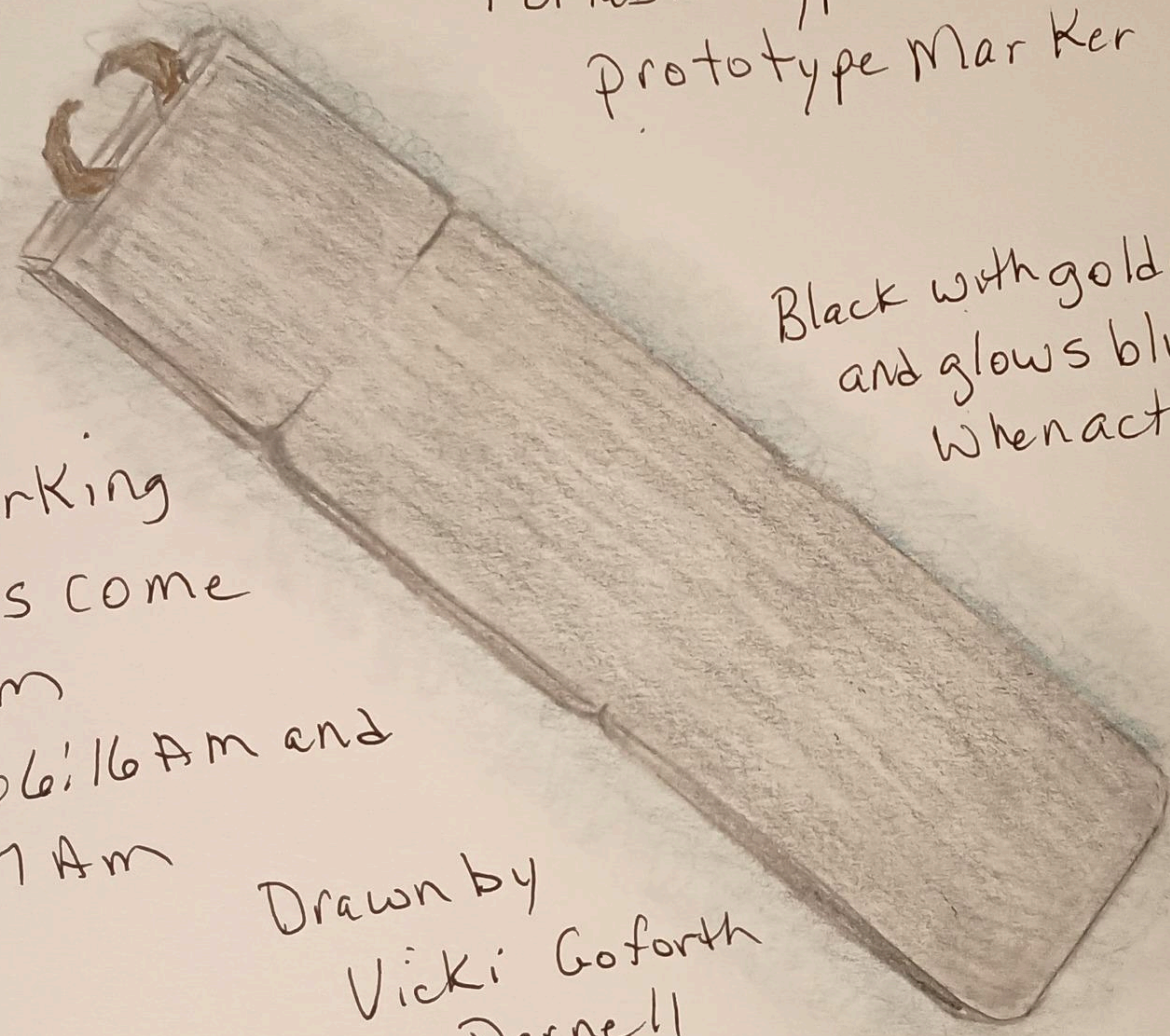 prototype Marker
Black with gold
and glows
when
s come
6:16 Am and
Am
Drawn by
Vicki Goforth